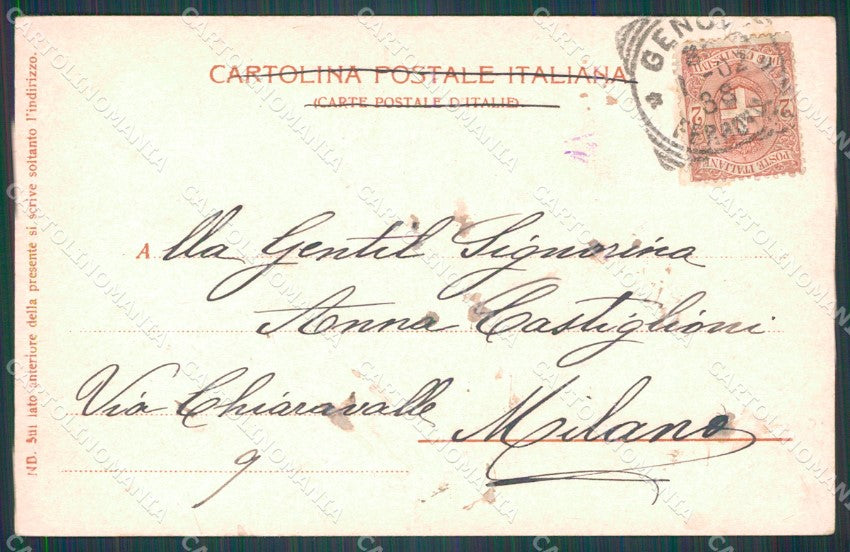 CARTOLINA POSTALE ITALIANA
(CARTE POSTALE D'ITALIE)
GENOVA
POSTE ITALIANE
Alla Gentil Signorina
Anna Castiglioni
Via Chiaravalle
Milano
9
NB. Sul lato anteriore della presente si scrive soltanto l'indirizzo.
CARTOLINOMANIA